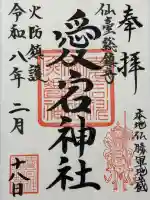 奉拝
仙臺総鎮守
愛宕神社
火防鎮護
令和八年二月
十八日
本地仏 勝軍地蔵